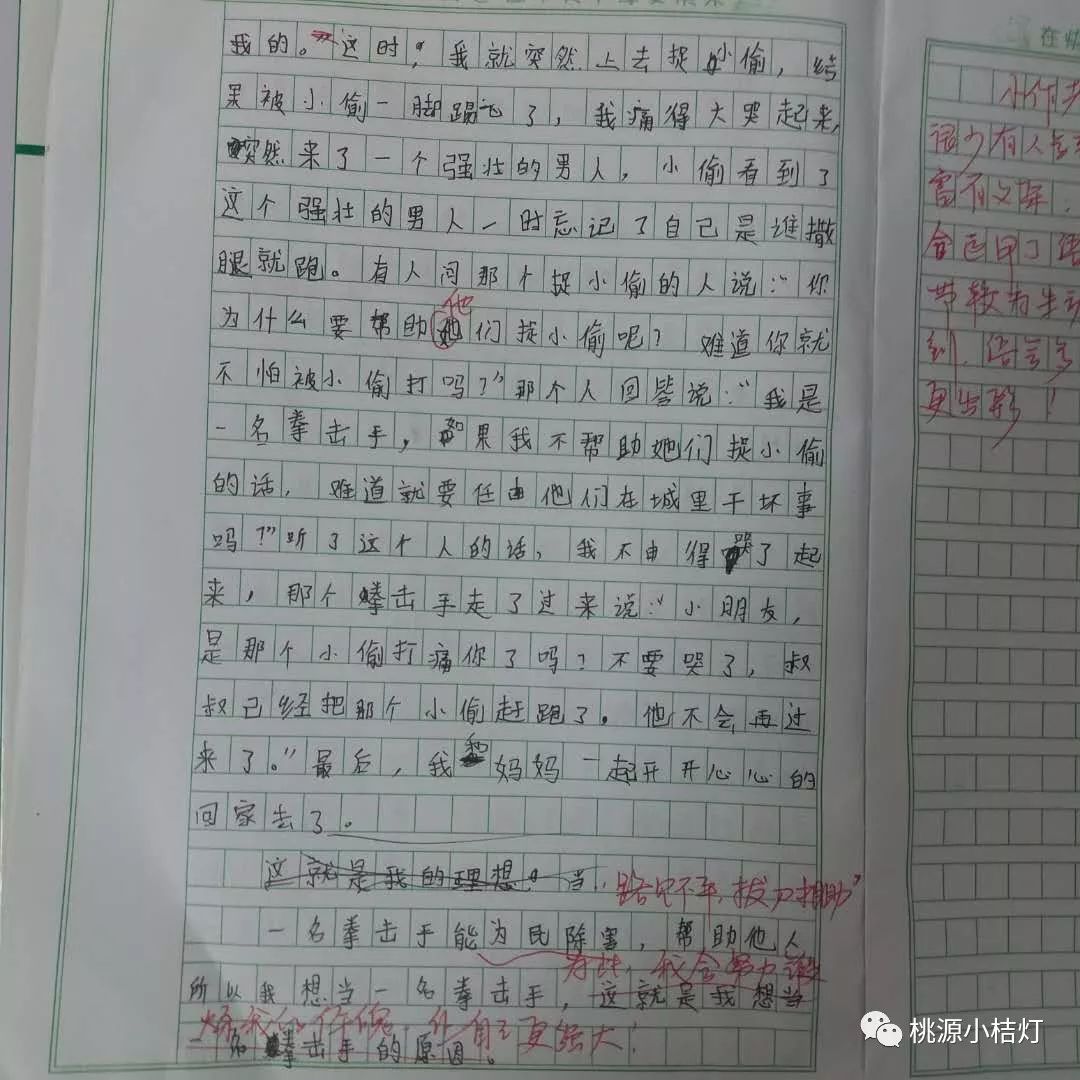 我的。”这时，我就突然上去捉小偷，结
果被小偷一脚踢飞了，我痛得大哭起来，
突然来了一个强壮的男人，小偷看到了
这个强壮的男人一时忘记了自己是谁撒
腿就跑。有人问那个捉小偷的人说：“你
他
为什么要帮助她们捉小偷呢？难道你就
不怕被小偷打吗？”那个人回答说：“我是
一名拳击手，如果我不帮助她们捉小偷
的话，难道就要任由他们在城里干坏事
吗？”听了这个人的话，我不由得哭了起
来，那个拳击手走了过来说：“小朋友，
是那个小偷打痛你了吗？不要哭了，叔
叔已经把那个小偷赶跑了。他不会再过
来了。”最后，我和妈妈一起开开心心的
回家去了。
这就是我的理想。当
路见不平，拔刀相助”
一名拳击手能为民除害，帮助他人
为此，我会努力
所以我想当一名拳击手，这就是我想当
自己更强大！
一名拳击手的原因。
小作者
有人
富有文采
带
到
语言
更出彩！
桃源小桔灯